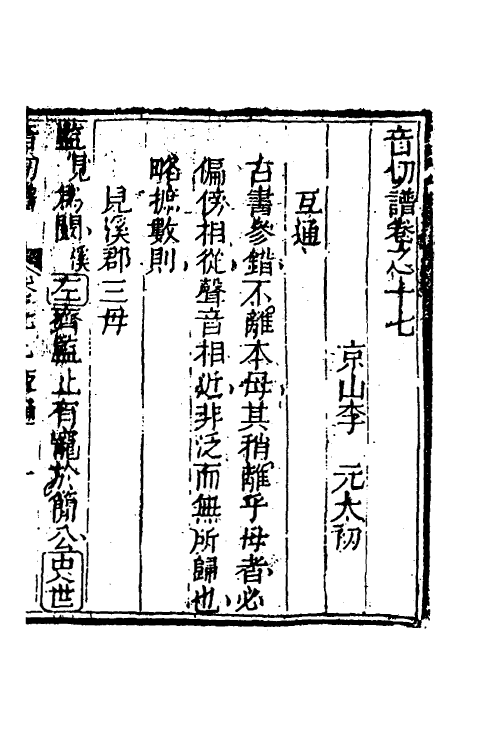 音切譜卷之十七
京山李 元太初
互通
古書參錯不離本母其稍離乎母者必
偏傍相從聲音相近非泛而無所歸也
略摭數則
見溪郡三母
監見爲闞溪 左齊監止有寵於簡公史世
音切譜 卷之十七 互通 一